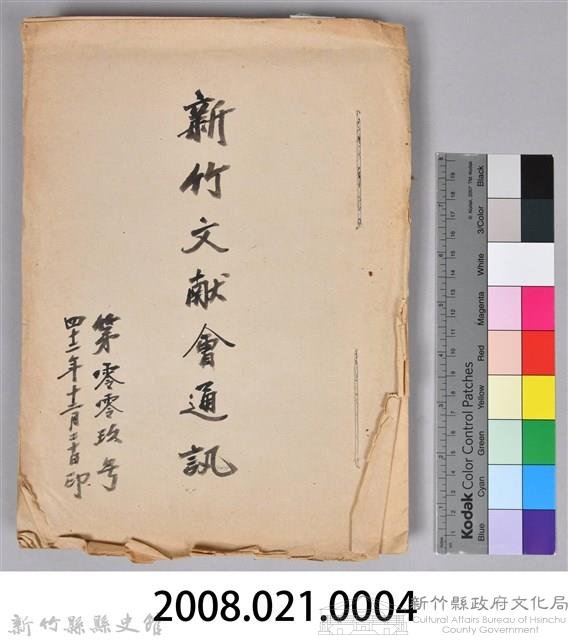 新竹文献會通訊
第零零玖号
四十二年十二月二十日印
Black
3/Color
White
Magenta
Red
Yellow
Green
Cyan
Blue
Kodak Color Control Patches
2008.021.0004
新竹縣縣史館
新竹縣政府文化局
Cultural Affairs Bureau of Hsinchu
County Government